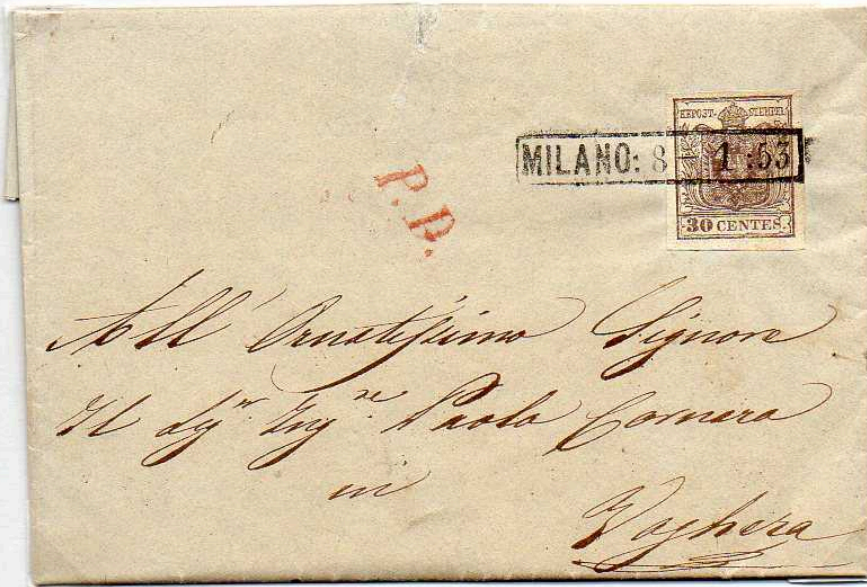 KKPOST-STEMPEL
MILANO: 8 - 1 :53
30 CENTES.
P.D.
All' Ornatissimo Signore
Il Sigr. Ingne. Paolo Cornara
in
Voghera